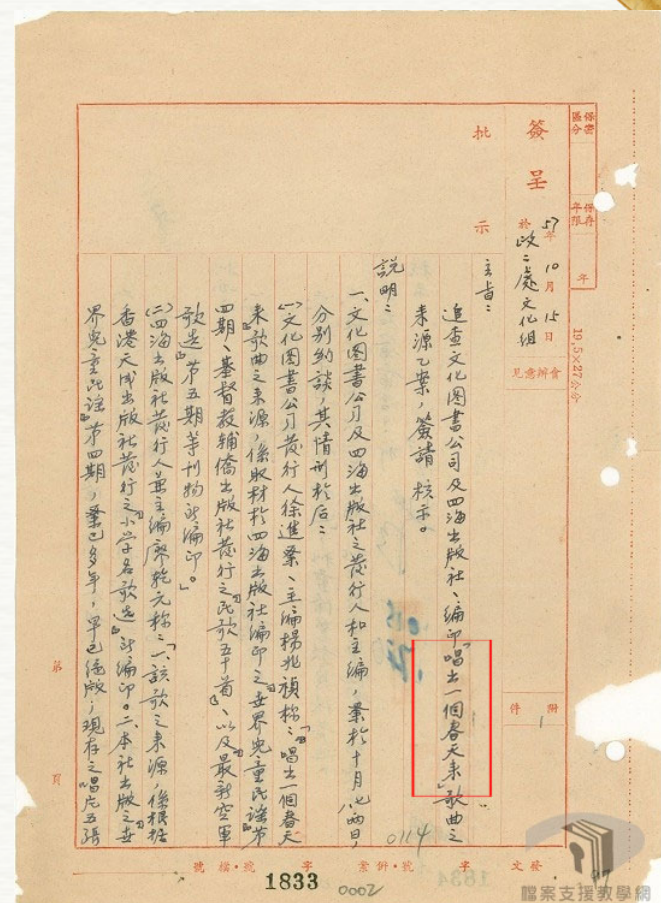 保密區分
保存年限
年
19.5×27公分
簽呈
57年10月15日
於
政二處文化組
會辦意見
附件
1
批示
主旨：
追查文化图書公司及四海出版社、編印「唱出一個春天來」歌曲之
來源乙案，簽請 核示。
說明：
一、文化图書公司及四海出版社之發行人和主編，業於十月八七兩日，
分別約談，其情形於后：
㈠文化图書公司發行人徐進業、主編楊兆禎称：「唱出一個春天
來」歌曲之來源，係取材於四海出版社編印之『世界兒童民謠』第
四期、基督教輔僑出版社發行之『民歌五十首』、以及『最新空軍
歌选』第五期等刊物所編印。」
㈡四海出版社發行人兼主編廖乾元称：「一、該歌之來源，係根据
香港天成出版社發行之『小学名歌选』所編印。二、本社出版之『世
界兒童民謠』第四期，業已多年，早已絕版，現存之唱片五張
第 頁
發文 字 號·附案 字 號·檔號
0114
1833
0002
檔案支援教學網